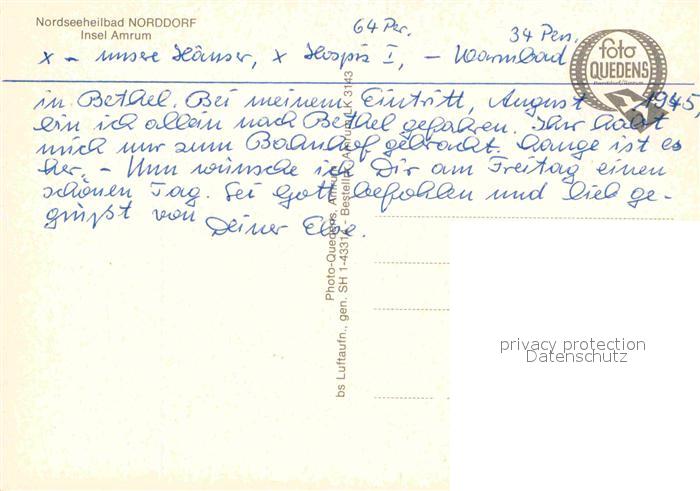 Nordseeheilbad NORDDORF
Insel Amrum
64 Per. 34 Pers.
x - unsere Häuser, x Hospiz I, - Warmbad
foto
QUEDENS
in Bethel. Bei meinem Eintritt, August 1945,
bin ich allein nach Bethel gefahren. Ihr habt
mich nur zum Bahnhof gebracht. Lange ist es
her. - Nun wünsche ich Dir am Freitag einen
schönen Tag. Sei Gott befohlen und lieb ge-
grüßt von
Deiner Else.
Photo-Quedens, Amrum - Bestellnr. Amrum LK 3143
bs Luftaufn., gen. SH 1-4331
privacy protection
Datenschutz